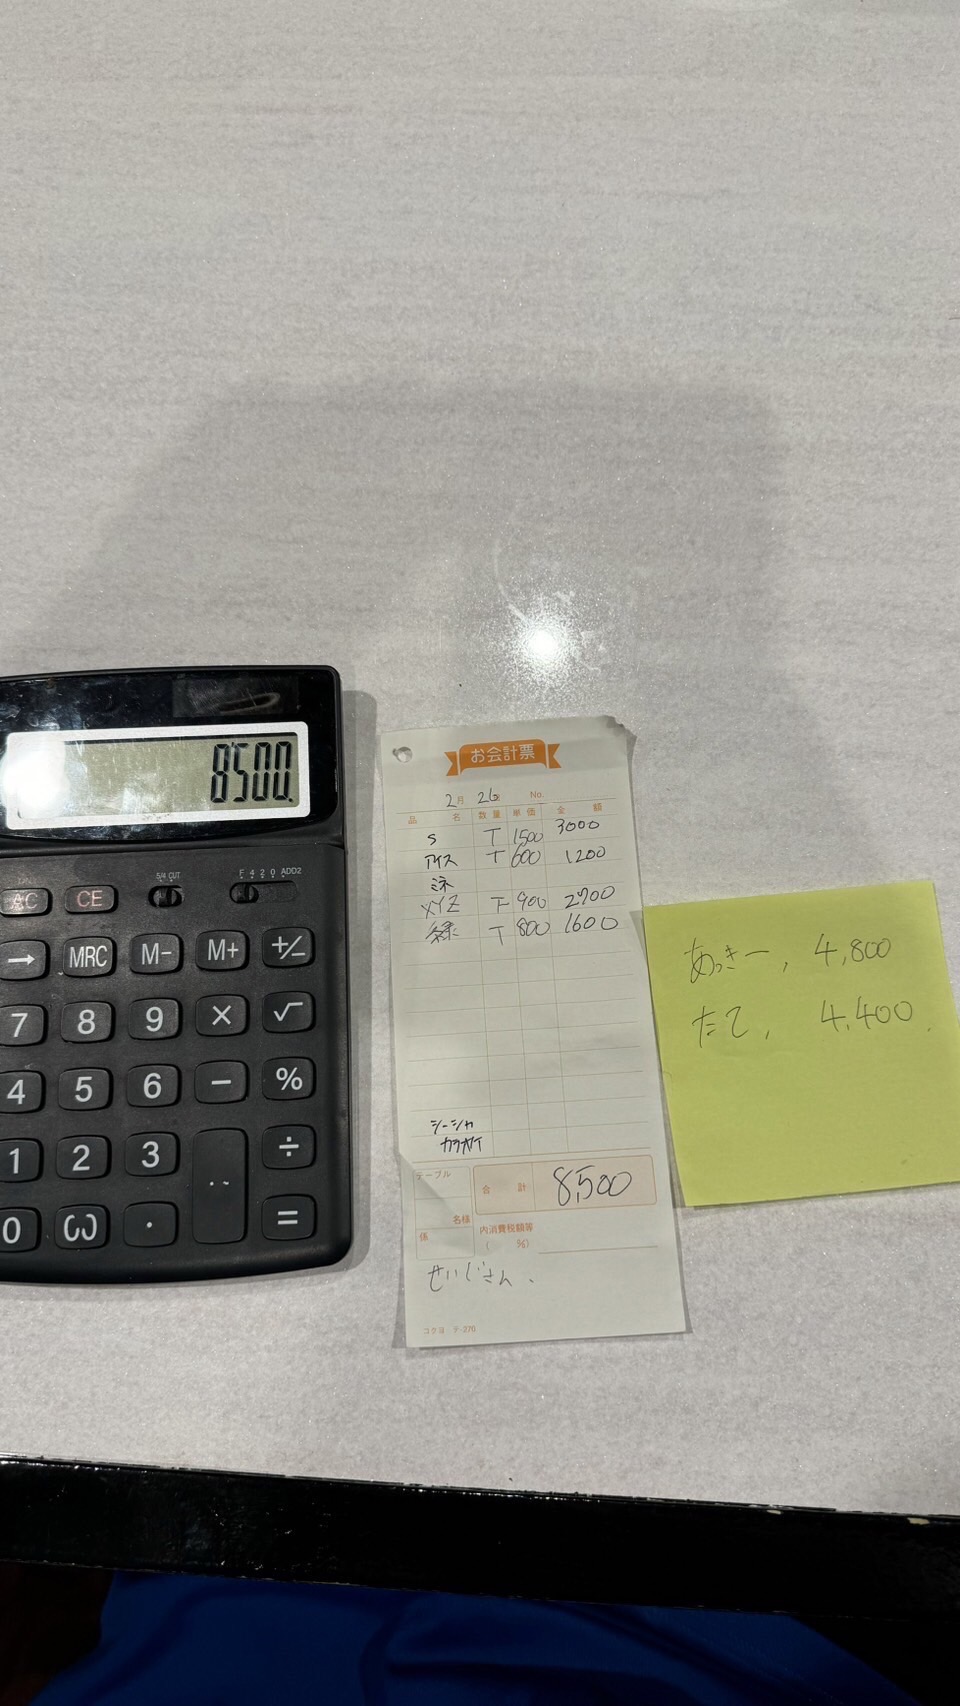 8500.
5/4 CUT
F 4 2 0 ADD2
AC CE
→ MRC M- M+ +/-
7 8 9 × √
4 5 6 − %
1 2 3 ÷
0 ·
=
お会計票
2月 26日 No.
品 名 数量 単価 金 額
S T 1500 3000
アイス T 600 1200
ミネ
XYZ 下 900 2700
緑 T 800 1600
シーシャ
カラオケ
テーブル
合 計 8,500
名様
係
内消費税額等
( %)
せいじさん、
コクヨ テ-270
あっきー, 4,800
たて, 4,400.